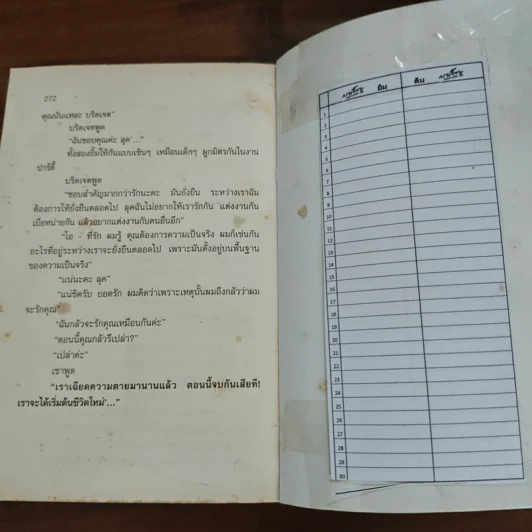 272
คุณนั่นแหละ บริดเจต"
บริดเจตพูด
"ฉันชอบคุณค่ะ ลุค'..."
ทั้งสองยิ้มให้กันแบบเขินๆ เหมือนเด็กๆ ผูกมิตรกันในงาน
ปาร์ตี้
บริดเจตพูด
"ชอบสำคัญมากกว่ารักนะคะ มันยั่งยืน ระหว่างเราฉัน
ต้องการให้ยั่งยืนตลอดไป ลุคฉันไม่อยากให้เรารักกัน แต่งงานกัน
เบื่อหน่ายกัน แล้วอยากแต่งงานกับคนอื่นอีก"
"โอ ที่รัก ผมรู้ คุณต้องการความเป็นจริง ผมก็เช่นกัน
อะไรที่อยู่ระหว่างเราจะยั่งยืนตลอดไป เพราะมันตั้งอยู่บนพื้นฐาน
ของความเป็นจริง"
"แน่นะคะ ลุค"
"แน่ซิครับ ยอดรัก ผมคิดว่าเพราะเหตุนั้นผมถึงกลัวว่าผม
จะรักคุณ"
"ฉันกลัวจะรักคุณเหมือนกันค่ะ"
"ตอนนี้คุณกลัวรึเปล่า?"
"เปล่าค่ะ"
เขาพูด
"เราเฉียดความตายมานานแล้ว ตอนนี้จบกันเสียที!
เราจะได้เริ่มต้นชีวิตใหม่'..."
ยืม คืน
1
2
3
4
5
6
7
8
9
10
11
12
13
14
15
16
17
18
19
20
21
22
23
24
25
26
27
28
29
30